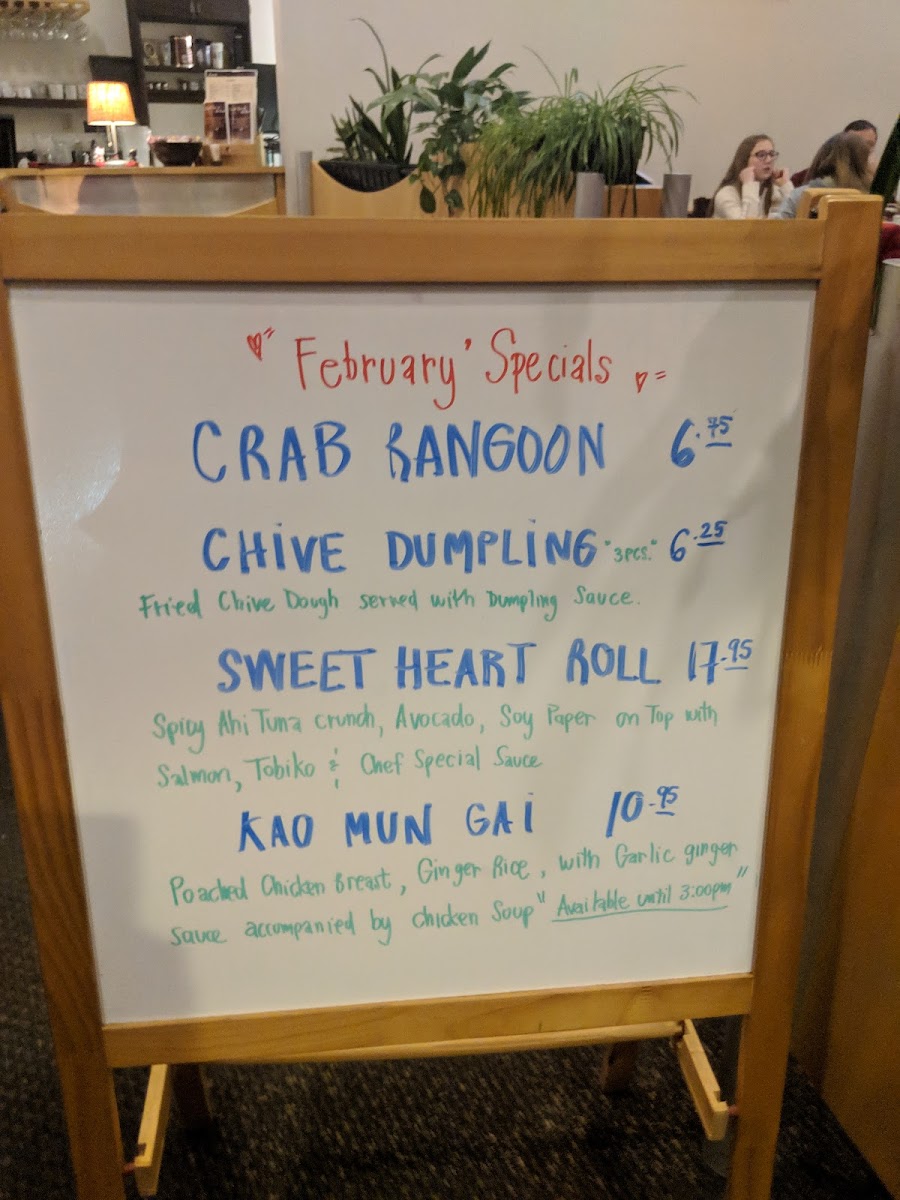 February' Specials
CRAB RANGOON 6.75
CHIVE DUMPLING "3PCS." 6.25
Fried Chive Dough served with Dumpling Sauce.
SWEET HEART ROLL 17.95
Spicy Ahi Tuna crunch, Avocado, Soy Paper on Top with
Salmon, Tobiko & Chef Special Sauce
KAO MUN GAI 10.95
Poached Chicken Breast, Ginger Rice, with Garlic ginger
sauce accompanied by chicken Soup "Available until 3:00pm"